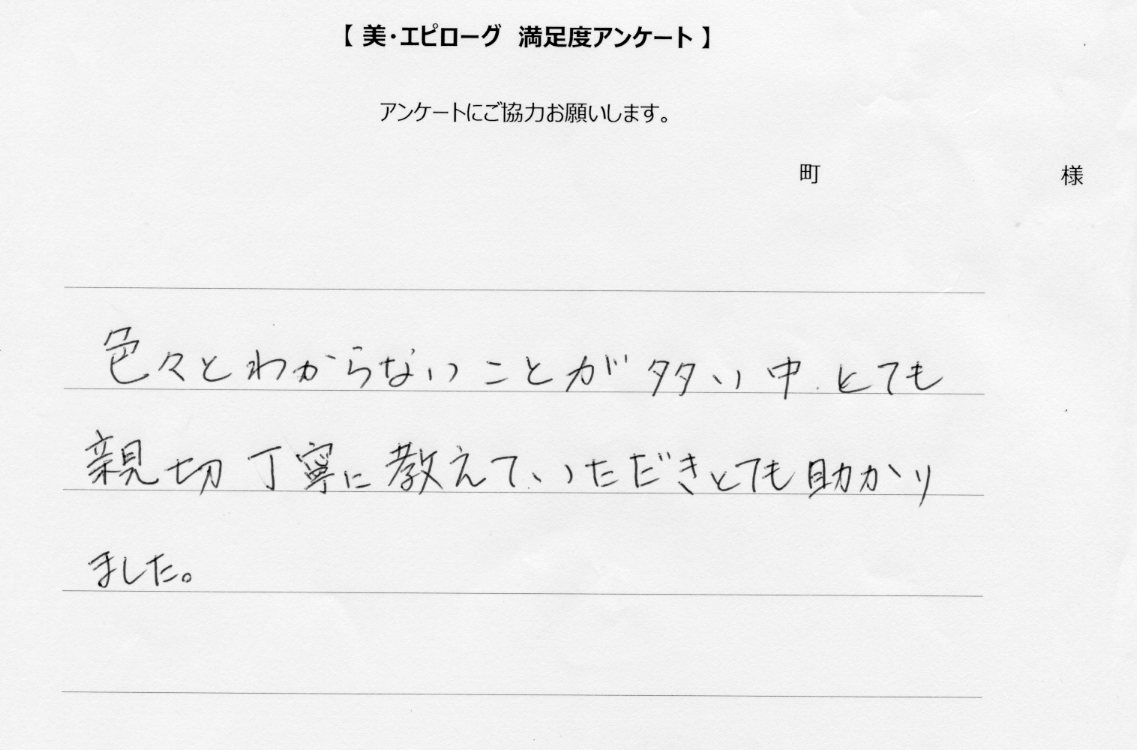 【 美・エピローグ 満足度アンケート 】
アンケートにご協力お願いします。
町 様
色々とわからないことが多い中、とても
親切丁寧に教えていただきとても助かり
ました。